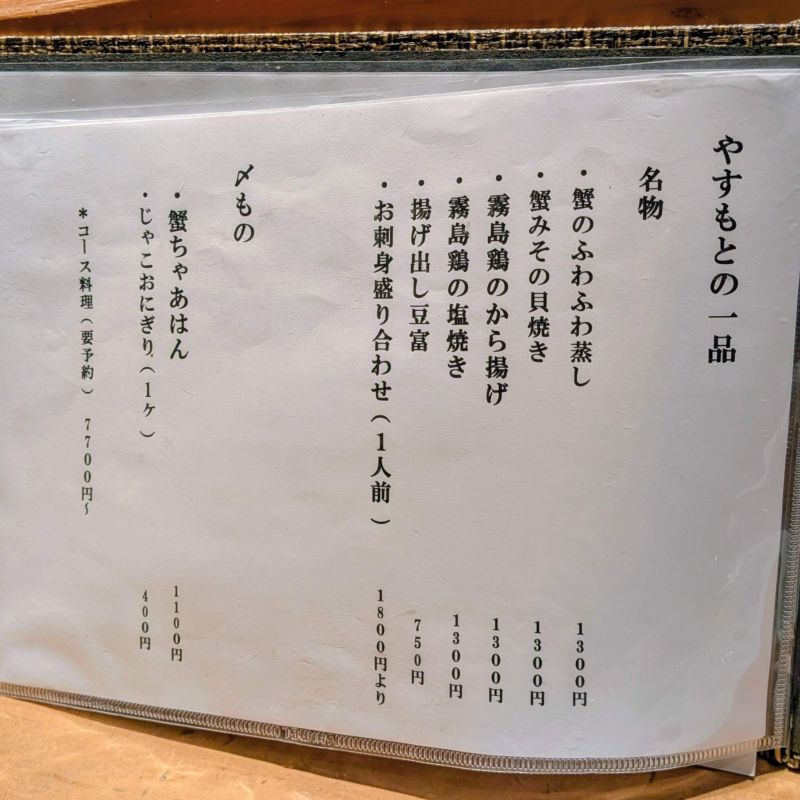 やすもとの一品
名物
・蟹のふわふわ蒸し 1300円
・蟹みその貝焼き 1300円
・霧島鶏のから揚げ 1300円
・霧島鶏の塩焼き 1300円
・揚げ出し豆富 750円
・お刺身盛り合わせ（1人前） 1800円より
〆もの
・蟹ちゃあはん 1100円
・じゃこおにぎり（1ヶ） 400円
＊コース料理（要予約） 7700円～